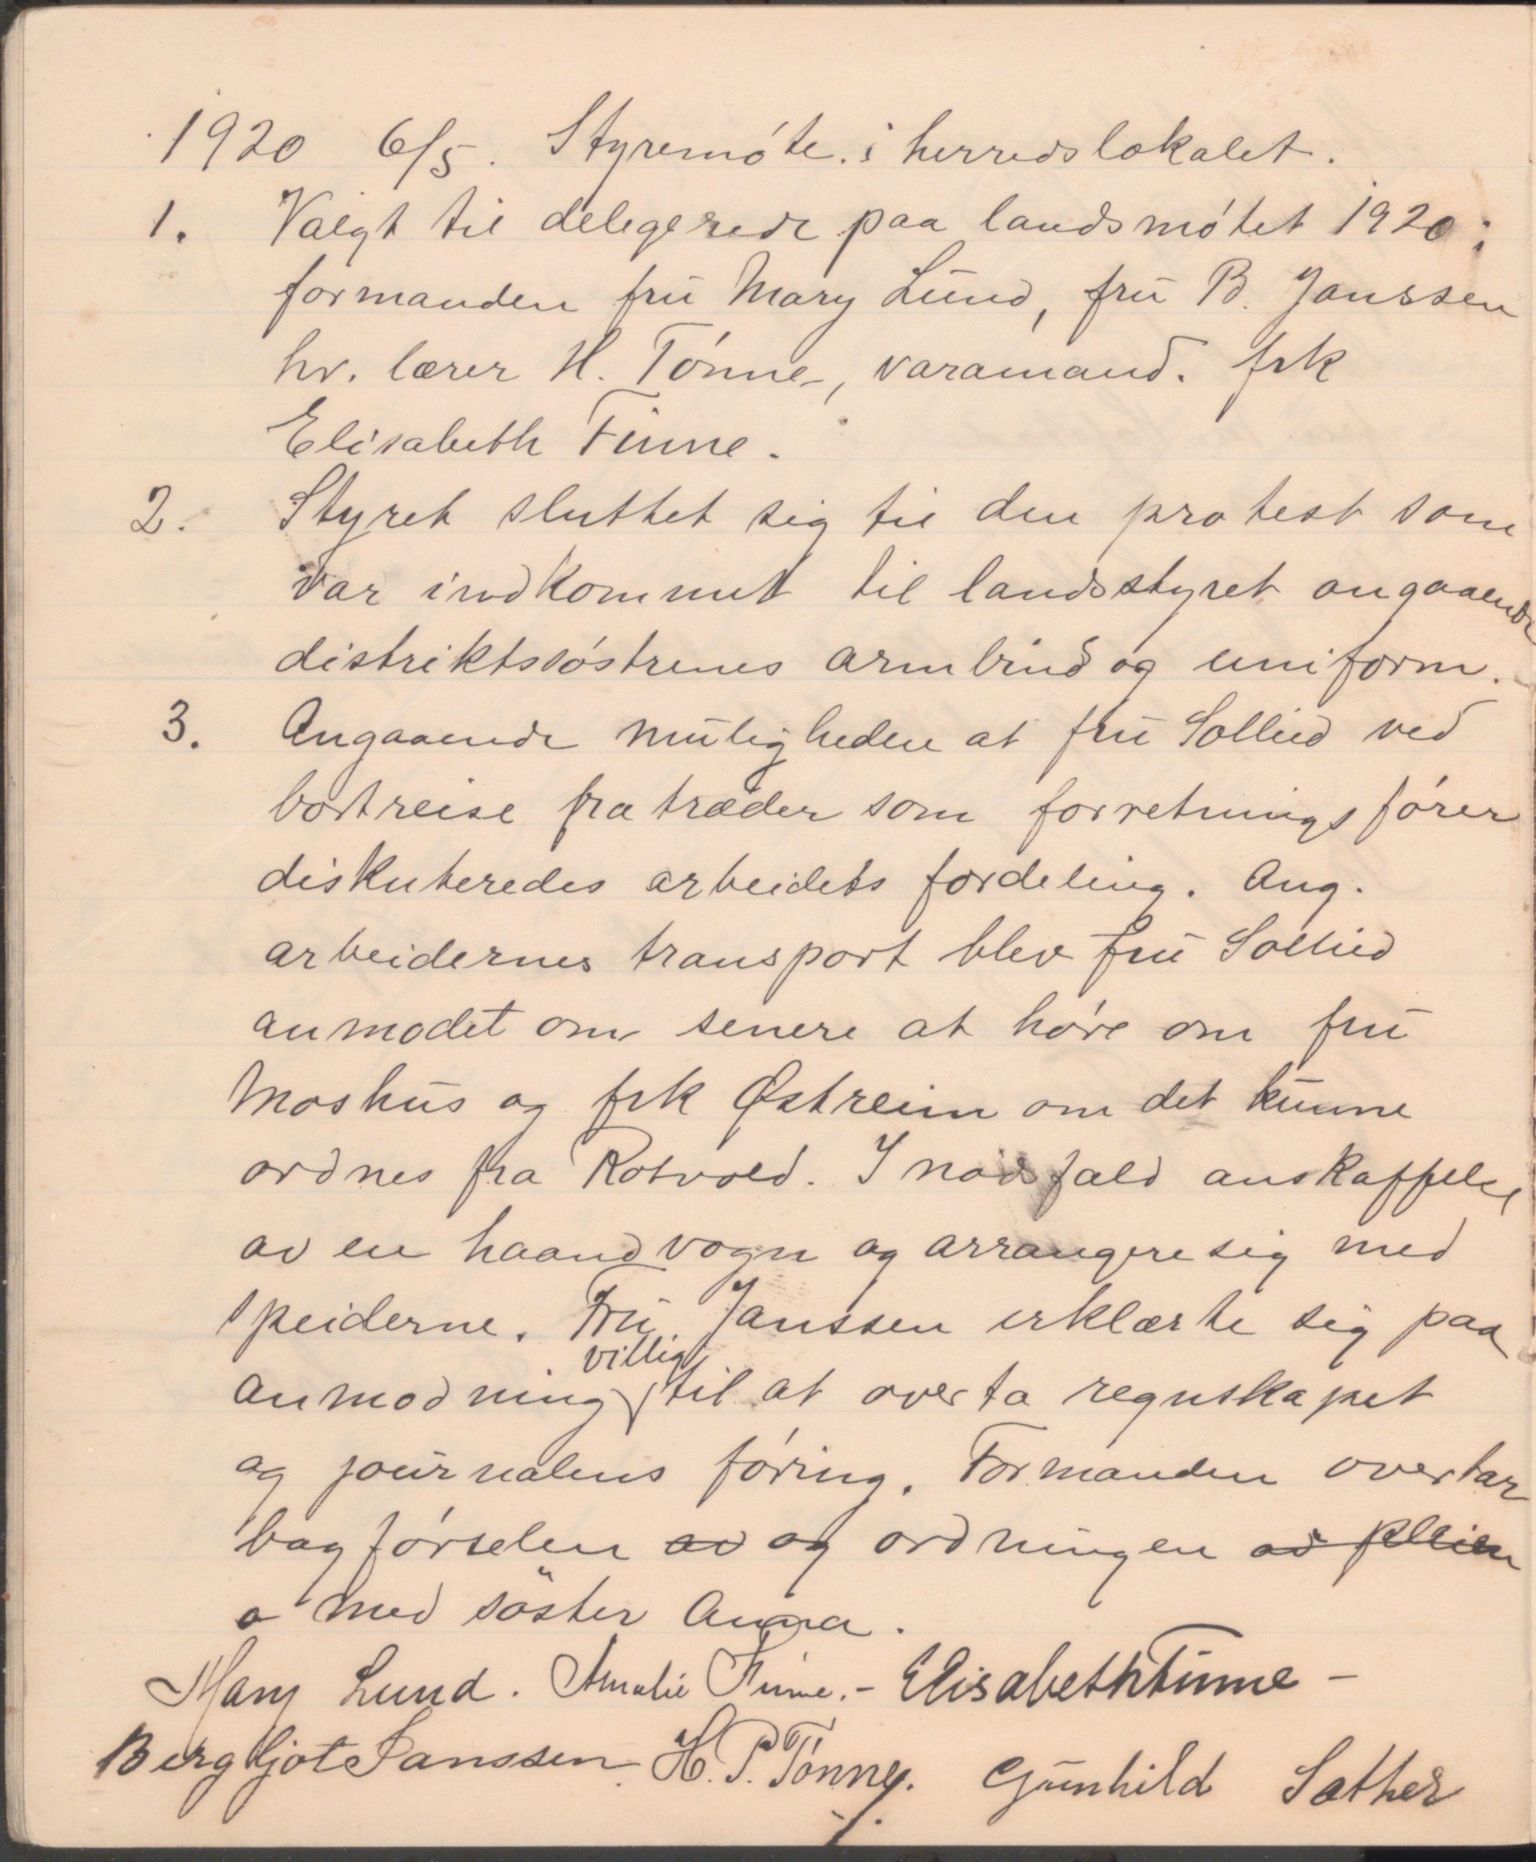 1920 6/5. Styremøte i herredslokalet.
1. Valgt til delegerede paa landsmøtet 1920:
formanden fru Mary Lund, fru B. Janssen
hr. lærer H. Tønne, varamand. frk
Elisabeth Finne.
2. Styret sluttet sig til den protest som
var indkommet til landsstyret angaaende
distriktssøstrenes armbind og uniform.
3. Angaaende muligheden at fru Sollied ved
bortreise fratræder som forretningsfører
diskuteredes arbeidets fordeling. Ang.
arbeidernes transport blev fru Sollied
anmodet om senere at høre om fru
Moshus og frk Østreim om det kunne
ordnes fra Rotvold. I nødsfald anskaffelse
av en haandvogn og arrangere sig med
speiderne. Fru Janssen erklærte sig paa
villig
anmodning til at overta regnskapet
og journalens føring. Formanden overtar
bogførselen av og ordningen av pleien
a med søster Anna.
Mary Lund. Amalie Finne. - Elisabeth Finne -
Bergljot Janssen. H. P. Tønne. Gunhild Sæther